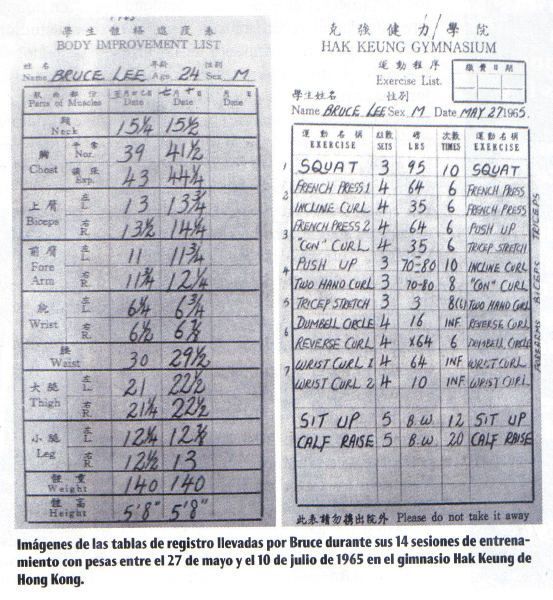 1965
學生體格進度表
BODY IMPROVEMENT LIST
姓名 年齡 性別
Name BRUCE LEE Age 24 Sex M
肌肉部份 五月廿七日 七月十日 月 日
Parts of Muscles Date Date Date
頸 Neck 15¼ 15½
胸 Chest 平常 Nor. 39 41½
擴張 Exp. 43 44¼
上臂 Biceps 左 L. 13 13¾
右 R. 13½ 14¼
前臂 Fore Arm 左 L. 11 11¾
右 R. 11¾ 12¼
腕 Wrist 左 L. 6¼ 6¾
右 R. 6½ 6⅞
腰 Waist 30 29½
大腿 Thigh 左 L. 21 22½
右 R. 21¼ 22½
小腿 Leg 左 L. 12¼ 12⅞
右 R. 12½ 13
體重 Weight 140 140
體高 Height 5'8" 5'8"
克強健力學院
HAK KEUNG GYMNASIUM
運動程序
Exercise List.
繳費日期
學生姓名 性別
Name BRUCE LEE Sex M Date MAY 27 1965.
運動名稱 組數 磅 次數 運動名稱
EXERCISE SETS LBS TIMES EXERCISE
1 SQUAT 3 95 10 SQUAT
2 FRENCH PRESS 1 4 64 6 FRENCH PRESS
INCLINE CURL 4 35 6 FRENCH PRESS
3 FRENCH PRESS 2 4 64 6 PUSH UP
"CON" CURL 4 35 6 TRICEP STRETCH
4 PUSH UP 3 70-80 10 INCLINE CURL
TWO HAND CURL 3 70-80 8 "CON" CURL
5 TRICEP STRETCH 3 3 8(L) TWO HAND CURL
DUMBELL CIRCLE 4 16 INF REVERSE CURL
6 REVERSE CURL 4 x64 6 DUMBELL CIRCLE
7 WRIST CURL 1 4 64 INF WRIST CURL
WRIST CURL 2 4 10 INF WRIST CURL
SIT UP 5 B.W. 12 SIT UP
CALF RAISE 5 B.W. 20 CALF RAISE
TRICEPS
BICEPS
FOREARMS
此表請勿携出院外 Please do not take it away
Imágenes de las tablas de registro llevadas por Bruce durante sus 14 sesiones de entrena-
miento con pesas entre el 27 de mayo y el 10 de julio de 1965 en el gimnasio Hak Keung de
Hong Kong.